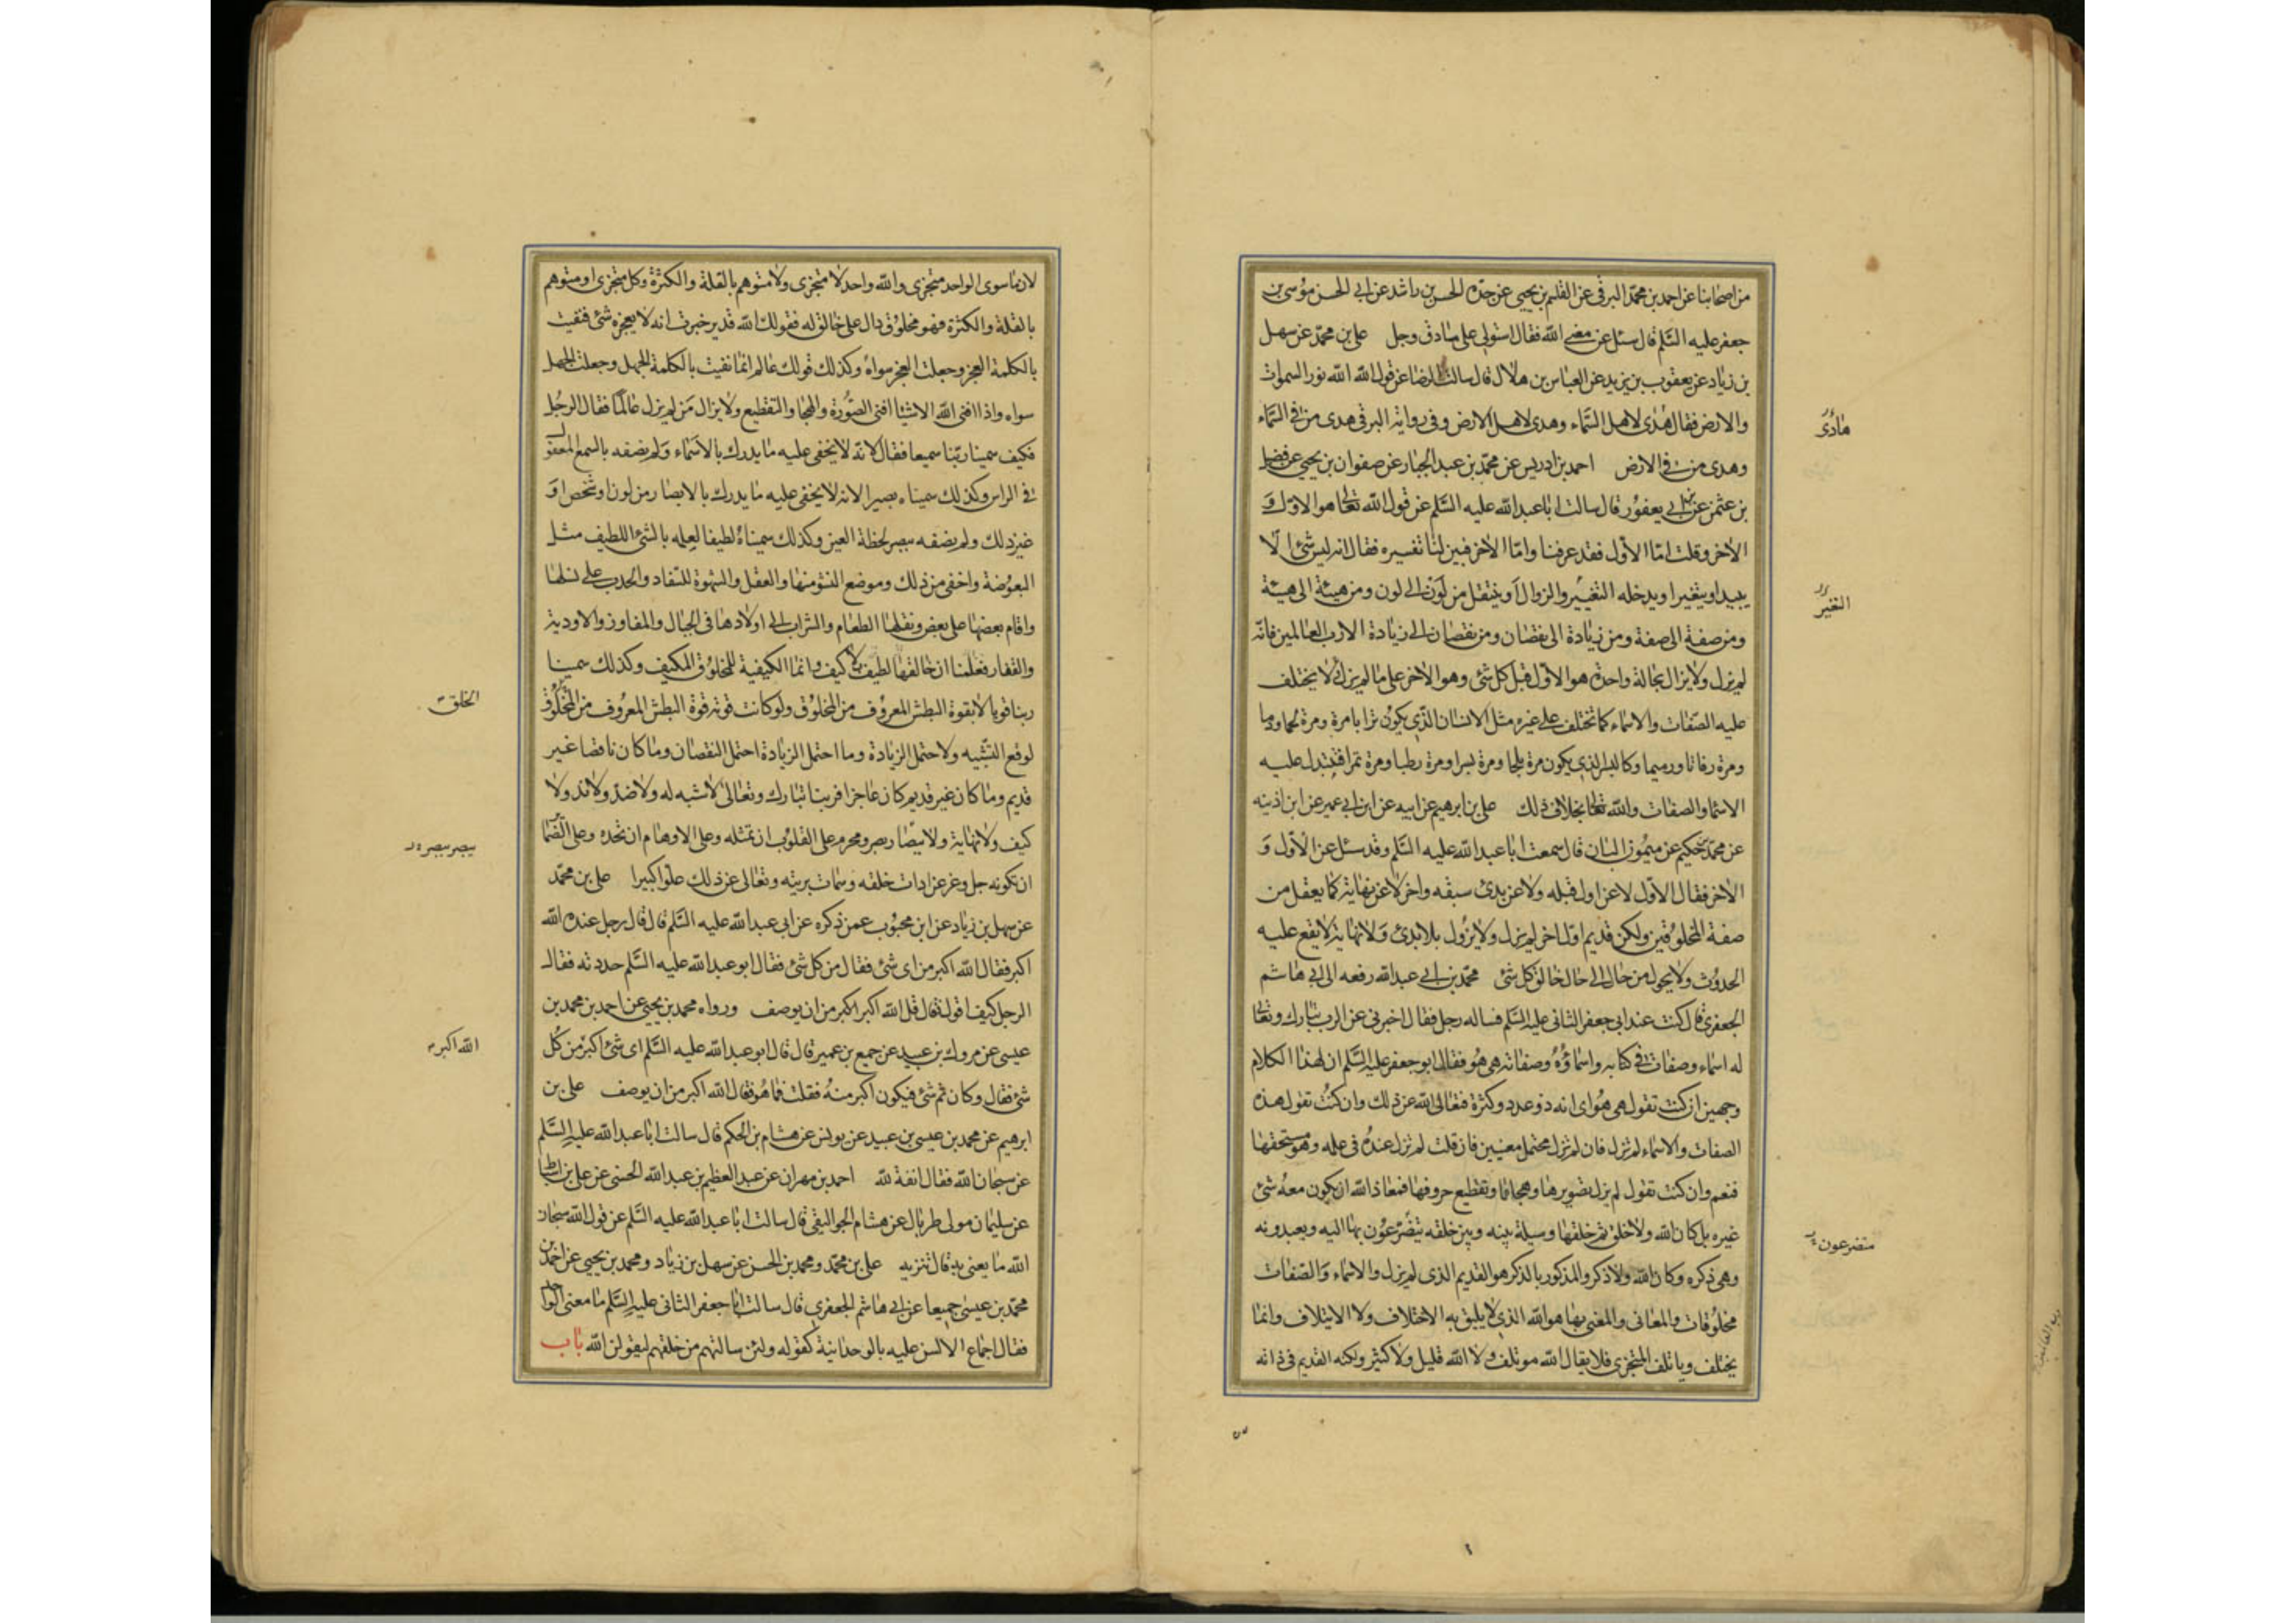 من اصحابنا عن احمد بن محمد البرقى عن القسم بن يحيى عن جده الحسن بن راشد عن ابى الحسن موسى بن
جعفر عليه السلم قال سئل عن معنى الله فقال استولى على ما دق وجل على بن محمد عن سهل
بن زياد عن يعقوب بن يزيد عن العباس بن هلال قال سالت الرضا عن قول الله الله نور السموات
والارض فقال هدى لاهل السماء وهدى لاهل الارض وفى رواية البرقى هدى من فى السماء
هادى
وهدى من فى الارض احمد بن ادريس عن محمد بن عبد الجبار عن صفوان بن يحيى عن فضيل
بن عثمن عن ابن ابى يعفور قال سالت ابا عبد الله عليه السلم عن قول الله تعالى هو الاول و
الاخر وقلت اما الاول فقد عرفنا واما الاخر فبين لنا تفسيره فقال انه ليس شئ الا
يبيد او يتغير او يدخله التغيير والزوال او ينتقل من لون الى لون ومن هيئة الى هيئة
التغير
ومن صفة الى صفة ومن زيادة الى نقصان ومن نقصان الى زيادة الا رب العالمين فانه
لم يزل ولا يزال بحالة واحدة هو الاول قبل كل شئ وهو الاخر على ما لم يزل لا يختلف
عليه الصفات والاسماء كما تختلف على غيره مثل الانسان الذى يكون ترابا مرة ومرة لحما ودما
ومرة رفاتا ورميما وكالبسر الذى يكون مرة بلحا ومرة بسرا ومرة رطبا ومرة تمرا فتبدل عليه
الاسماء والصفات والله تعالى بخلاف ذلك على بن ابرهيم عن ابيه عن ابن ابى عمير عن ابن اذينه
عن محمد بن حكيم عن ميمون البان قال سمعت ابا عبد الله عليه السلم وقد سئل عن الاول و
الاخر فقال الاول لا عن اول قبله ولا عن بدئ سبقه واخر لا عن نهاية كما يعقل من
صفة المخلوقين ولكن قديم اول اخر لم يزل ولا يزول بلا بدئ ولا نهاية لا يقع عليه
الحدوث ولا يحول من حال الى حال خالق كل شئ محمد بن ابى عبد الله رفعه الى ابى هاشم
الجعفرى قال كنت عند ابى جعفر الثانى عليه السلم فساله رجل فقال اخبرنى عن الرب تبارك وتعالى
له اسماء وصفات فى كتابه واسماؤه وصفاته هى هو فقال ابو جعفر عليه السلم ان لهذا الكلام
وجهين ان كنت تقول هى هو اى انه ذو عدد وكثرة فتعالى الله عن ذلك وان كنت تقول هذه
الصفات والاسماء لم تزل فان لم تزل محتمل معنيين فان قلت لم تزل عنده فى علمه وهو مستحقها
فنعم وان كنت تقول لم يزل تصويرها وهجاؤها وتقطيع حروفها فمعاذ الله ان يكون معه شئ
غيره بل كان الله ولا خلق ثم خلقها وسيلة بينه وبين خلقه يتضرعون بها اليه ويعبدونه
متضرعون
وهى ذكره وكان الله ولا ذكر والمذكور بالذكر هو القديم الذى لم يزل والاسماء والصفات
مخلوقات والمعانى والمعنى بها هو الله الذى لا يليق به الاختلاف ولا الايتلاف وانما
يختلف وياتلف المتجزى فلا يقال الله موتلف ولا الله قليل ولا كثير ولكنه القديم فى ذاته
لان ما سوى الواحد متجزى والله واحد لا متجزى ولا متوهم بالقلة والكثرة وكل متجزى او متوهم
بالقلة والكثرة فهو مخلوق دال على خالق له فقولك الله قدير خبرت انه لا يعجزه شئ فنفيت
بالكلمة العجز وجعلت العجز سواه وكذلك قولك عالم انما نفيت بالكلمة الجهل وجعلت الجهل
سواه واذا افنى الله الاشيا افنى الصورة والهجا والتقطيع ولا يزال من لم يزل عالما فقال الرجل
فكيف سمينا ربنا سميعا فقال لانه لا يخفى عليه ما يدرك بالاسماء ولم نصفه بالسمع المعقول
فى الراس وكذلك سميناه بصيرا لانه لا يخفى عليه ما يدرك بالابصار من لون او شخص او
غير ذلك ولم نصفه ببصر لحظة العين وكذلك سميناه لطيفا لعلمه بالشئ اللطيف مثل
البعوضة واخفى من ذلك وموضع النشو منها والعقل والشهوة للسفاد والحدب على نسلها
واقام بعضها على بعض ونقلها الطعام والشراب الى اولادها فى الجبال والمفاوز والاودية
والقفار فعلمنا ان خالقها لطيف بلا كيف وانما الكيفية للمخلوق المكيف وكذلك سمينا
ربنا قويا لا بقوة البطش المعروف من المخلوق ولو كانت قوته قوة البطش المعروف من المخلوق
الخلق
لوقع التشبيه ولاحتمل الزيادة وما احتمل الزيادة احتمل النقصان وما كان ناقصا غير
قديم وما كان غير قديم كان عاجزا فربنا تبارك وتعالى لا شبه له ولا ضد ولا ند ولا
كيف ولا نهاية ولا تبصار بصر ومحرم على القلوب ان تمثله وعلى الاوهام ان تحده وعلى الضما
يبصر ببصر
ان تكونه جل وعز عن ادات خلقه وسمات بريته وتعالى عن ذلك علوا كبيرا على بن محمد
عن سهل بن زياد عن ابن محبوب عمن ذكره عن ابى عبد الله عليه السلم قال قال رجل عنده الله
اكبر فقال الله اكبر من اى شئ فقال من كل شئ فقال ابو عبد الله عليه السلم حددته فقال
الرجل كيف اقول قال قل الله اكبر اكبر من ان يوصف ورواه محمد بن يحيى عن احمد بن محمد بن
عيسى عن مروك بن عبيد عن جميع بن عمير قال قال ابو عبد الله عليه السلم اى شئ اكبر من كل
الله اكبر
شئ فقال وكان ثم شئ فيكون اكبر منه فقلت فما هو فقال الله اكبر من ان يوصف على بن
ابرهيم عن محمد بن عيسى بن عبيد عن يونس عن هشام بن الحكم قال سالت ابا عبد الله عليه السلم
عن سبحان الله فقال انفة لله احمد بن مهران عن عبد العظيم بن عبد الله الحسنى عن على بن اسباط
عن سليمان مولى طربال عن هشام الجواليقى قال سالت ابا عبد الله عليه السلم عن قول الله سبحان
الله ما يعنى به قال تنزيه على بن محمد ومحمد بن الحسن عن سهل بن زياد ومحمد بن يحيى عن احمد بن
محمد بن عيسى جميعا عن ابى هاشم الجعفرى قال سالت ابا جعفر الثانى عليه السلم ما معنى الواحد
فقال اجماع الالسن عليه بالوحدانية كقوله ولئن سالتهم من خلقهم ليقولن الله باب